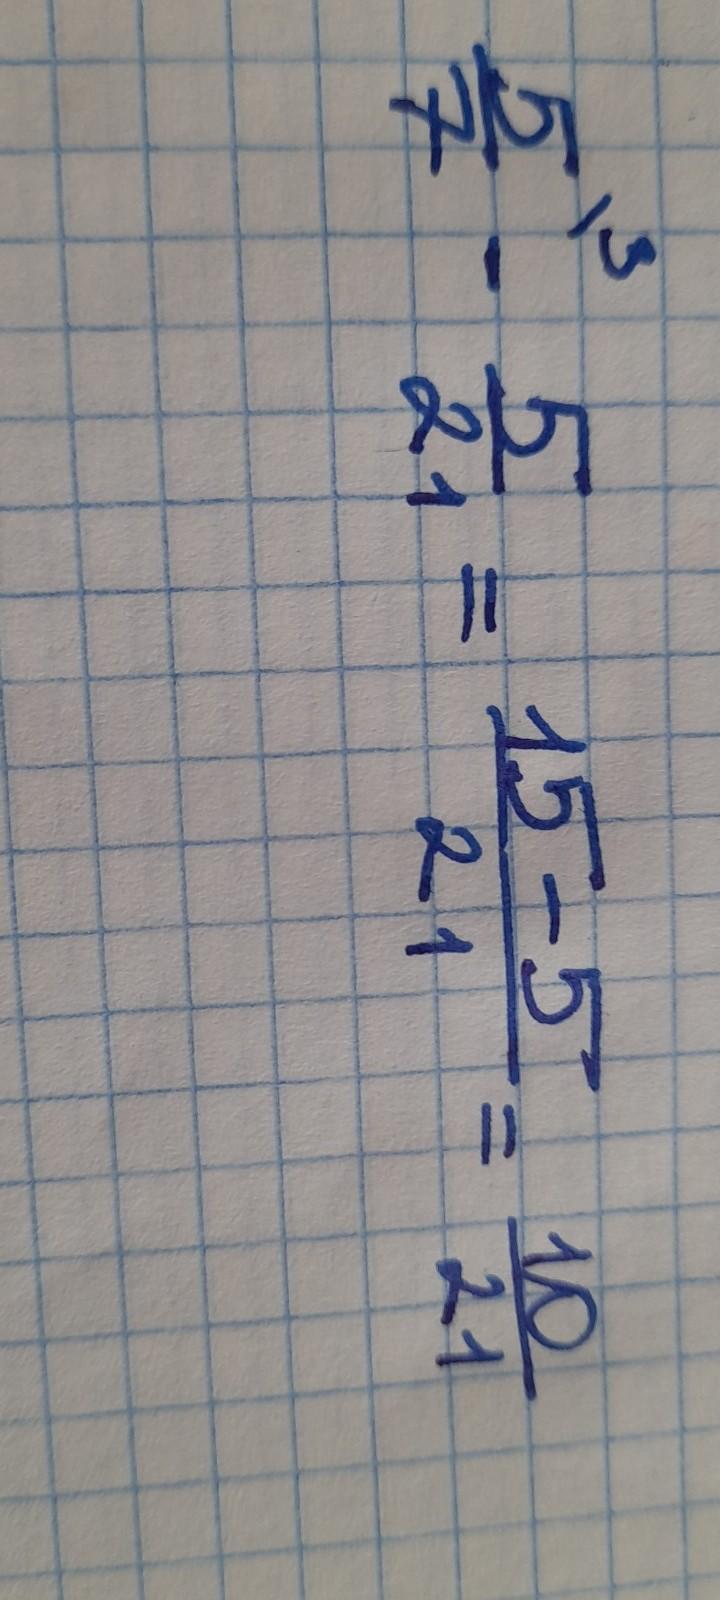 5/7 \3 - 5/21 = 15-5/21 = 10/21